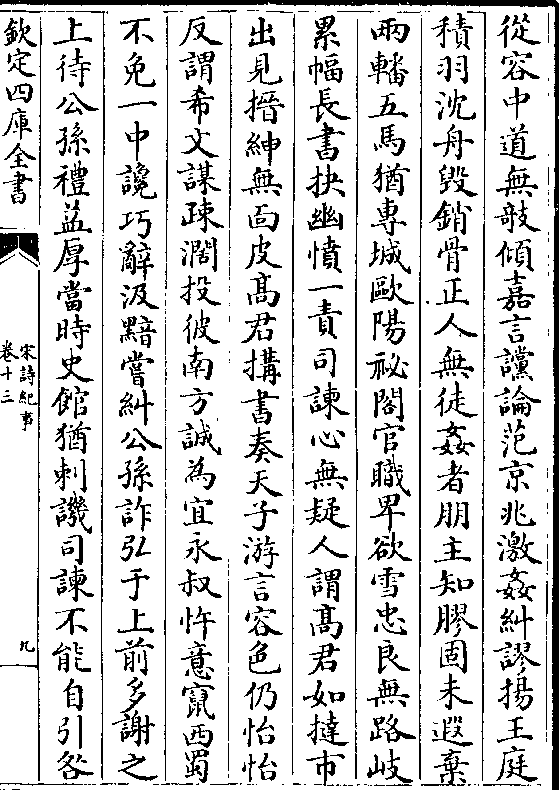 從容中道無敧傾嘉言讜論范京兆激姦糾謬揚王庭
積羽沈舟毀銷骨正人無徒姦者朋主知膠固未遐棄
兩轓五馬猶專城歐陽祕閣官職卑欲雪忠良無路岐
累幅長書抉幽憤一責司諫心無疑人謂髙君如撻市
出見搢紳無面皮髙君搆書奏天子游言容色仍怡怡
反謂希文謀疎濶投彼南方誠為宜永叔忤意竄西蜀
不免一中讒巧辭汲黯嘗糾公孫詐弘于上前多謝之
上待公孫禮益厚當時史館猶刺譏司諫不能自引咎
欽定四庫全書
宋詩紀事
卷十三
九